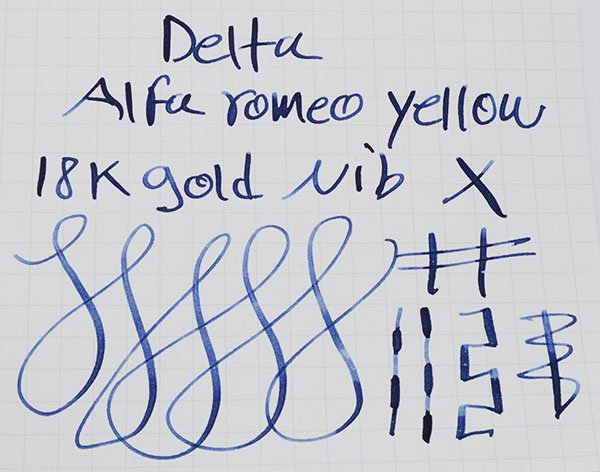 Delta
Alfa romeo yellow
18K gold Nib X